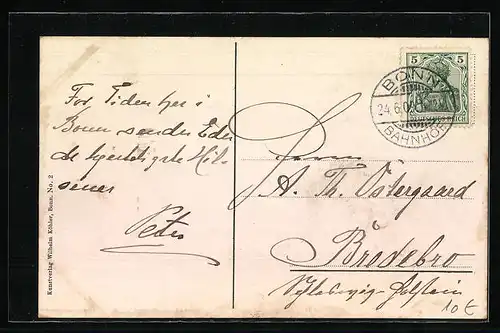 For Tiden her i
Bonn sender Eder
de hjerteligste Hil-
sener
Peter
Kunstverlag Wilhelm Köhler, Bonn. No. 2
5 5
BONN
24.6.0
BAHNHOF
Herrn
A. Th. Östergaard
Bredebro
Schleswig-Holstein
10 €